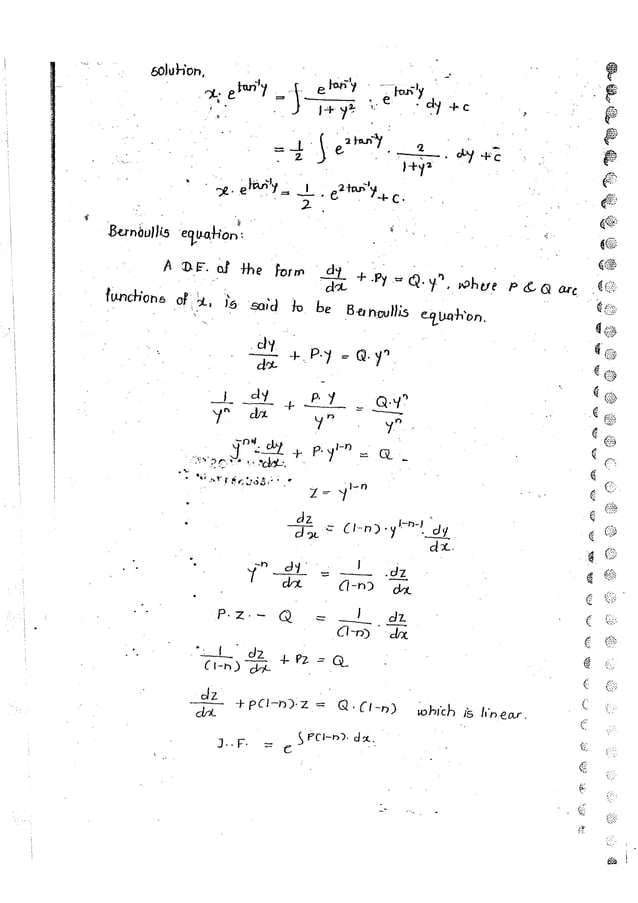 solution,
x. e^{tan⁻¹y} = ∫ e^{tan⁻¹y}/(1+y²) . e^{tan⁻¹y} dy + c
= 1/2 ∫ e^{2tan⁻¹y} . 2/(1+y²) . dy + c
x. e^{tan⁻¹y} = 1/2 . e^{2tan⁻¹y} + c.
Bernoullis equation:
A D.E. of the form dy/dx + .Py = Q.yⁿ, where P & Q are
functions of x, is said to be Bernoullis equation.
dy/dx + P.y = Q.yⁿ
1/yⁿ dy/dx + P.y/yⁿ = Q.yⁿ/yⁿ
dy/dx + P.y^{1-n} = Q
z = y^{1-n}
dz/dx = (1-n).y^{1-n-1}. dy/dx.
y⁻ⁿ dy/dx = 1/(1-n) . dz/dx
P.z. - Q = 1/(1-n) . dz/dx
1/(1-n) dz/dx + Pz = Q
dz/dx + P(1-n).z = Q.(1-n) which is linear.
I.F. = e^{∫P(1-n).dx.}